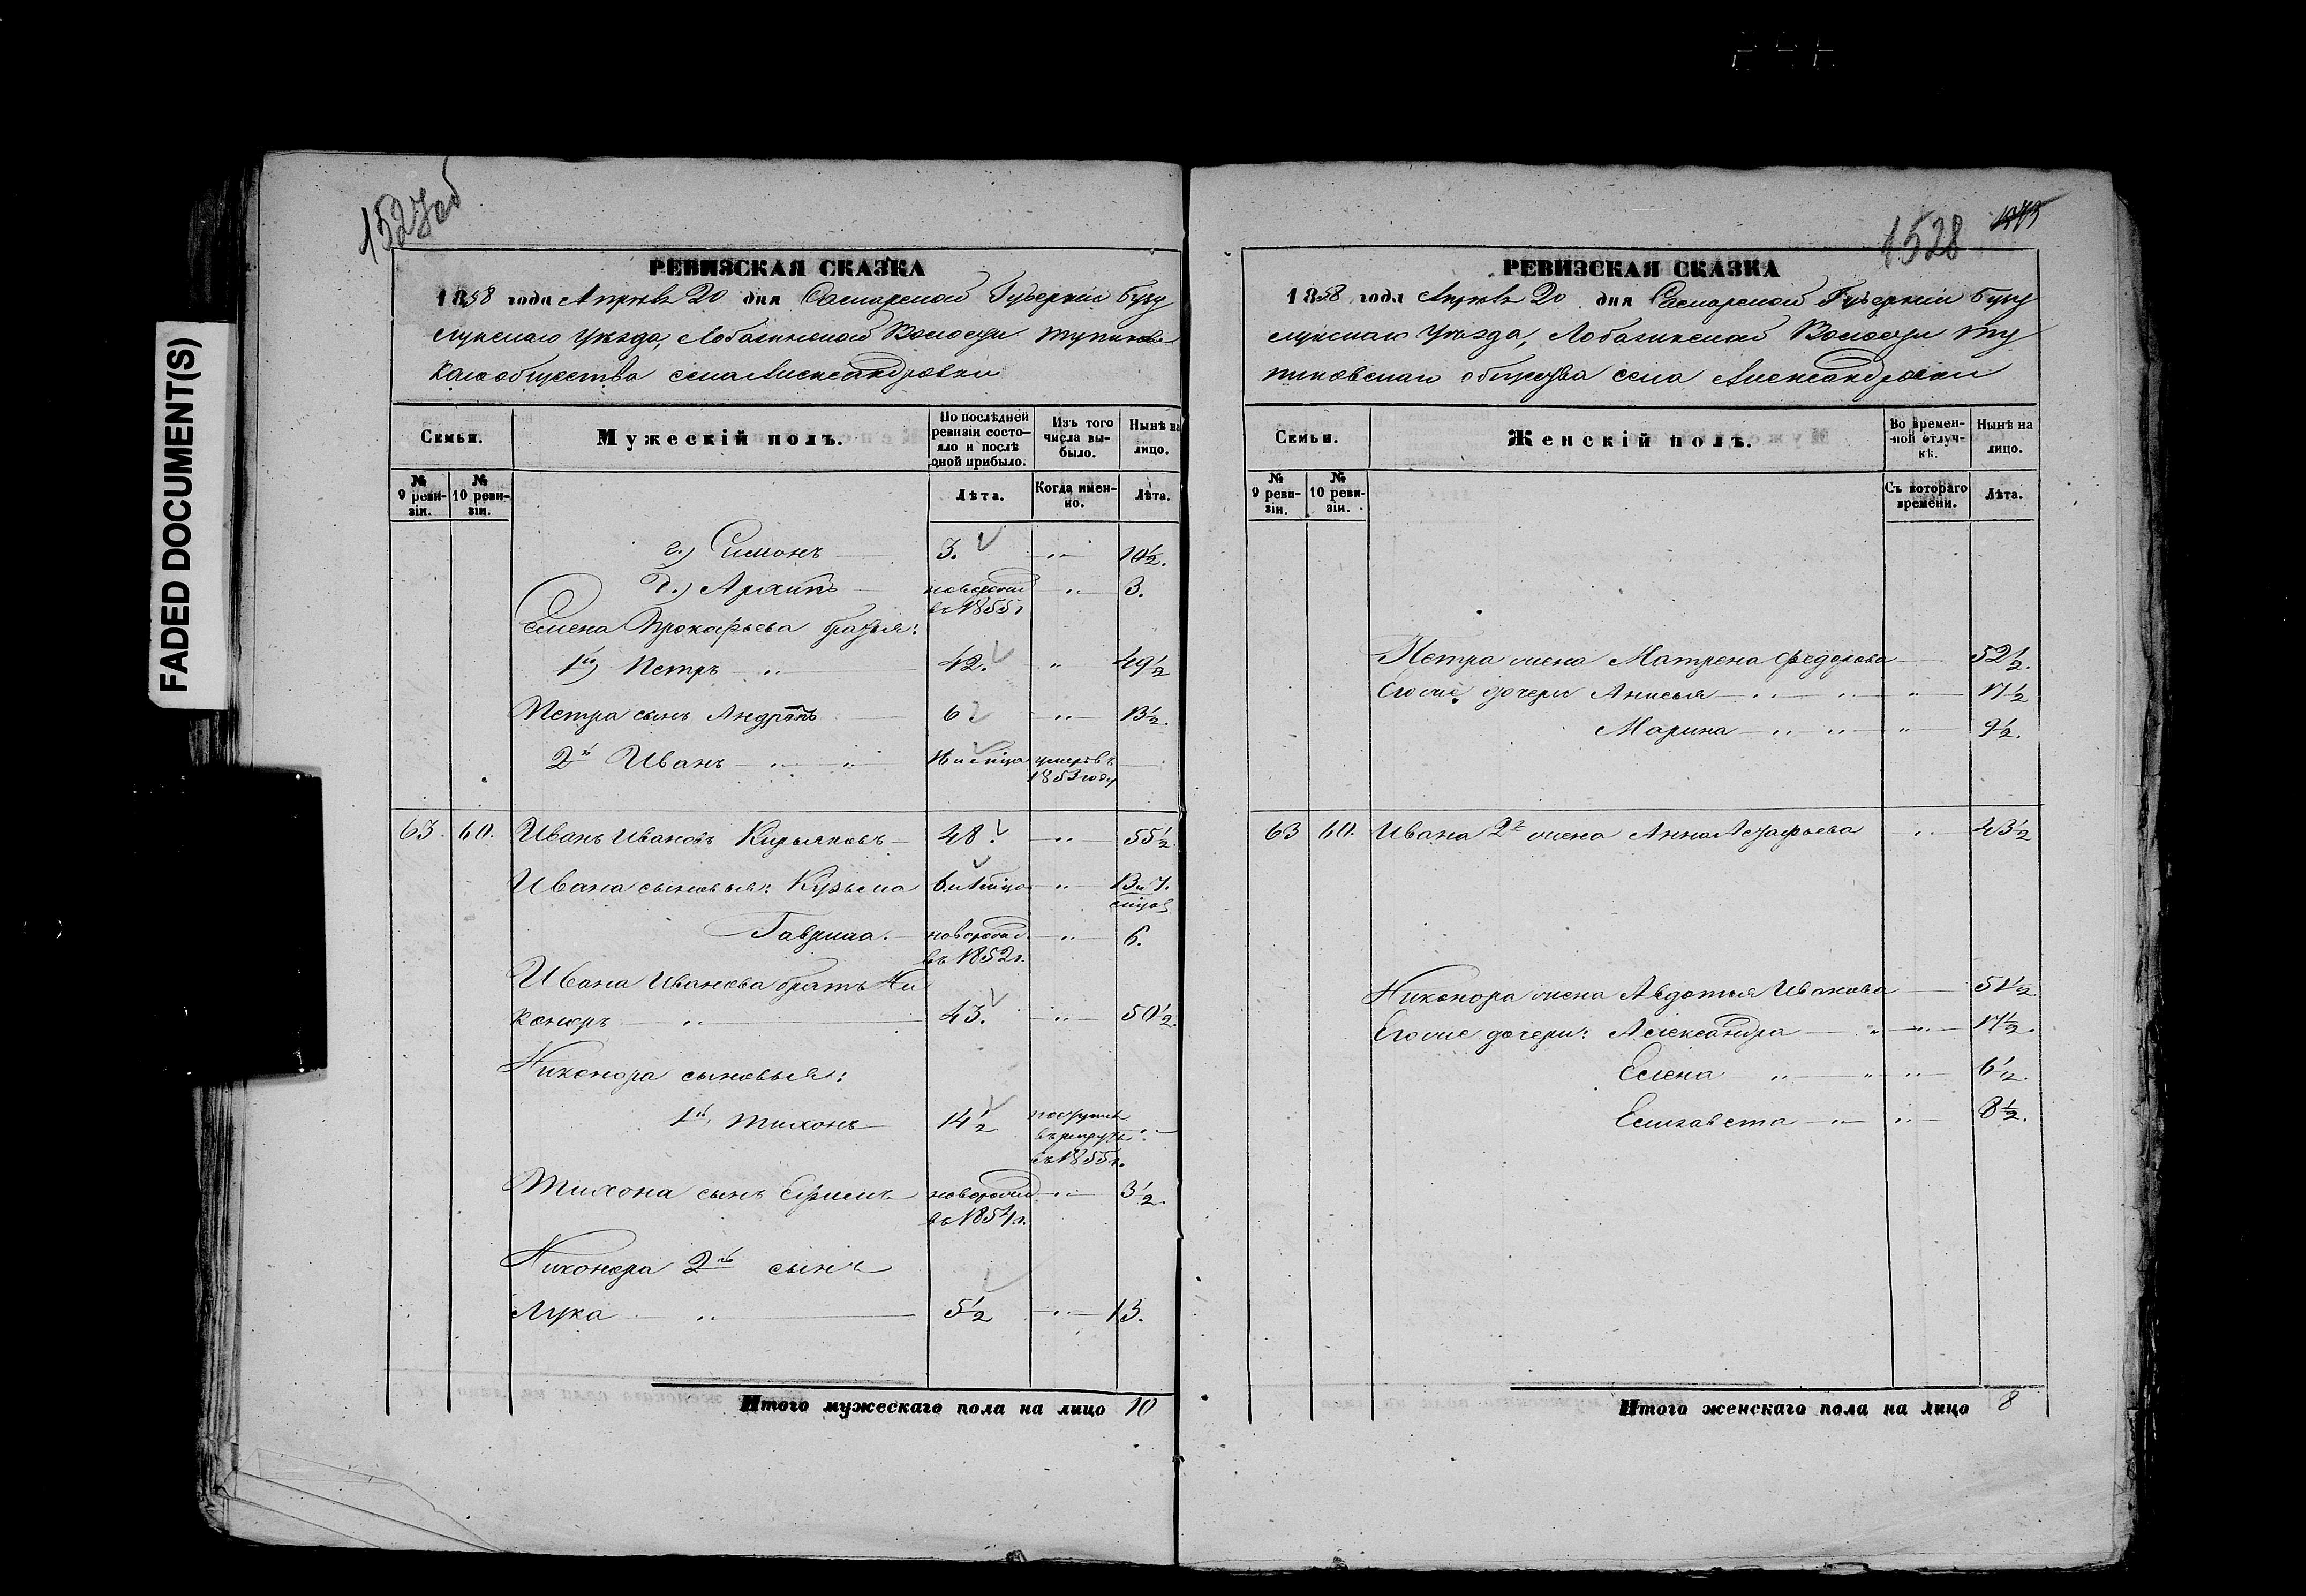 FADED DOCUMENT(S)
1527об
РЕВИЗСКАЯ СКАЗКА
1858 года Апреля 20 дня Самарской Губерніи Бузу
лукскаго Уѣзда, Лобазинской Волости Тупиковс
каго общества села Александровки
Семьи.
Мужескій полъ.
По послѣдней ревизіи состояло и послѣ оной прибыло.
Изъ того числа выбыло.
Нынѣ на лицо.
№ 9 ревизіи.
№ 10 ревизіи.
Лѣта.
Когда именно.
Лѣта.
г.) Симонъ 3. 10½.
д.) Архипъ новорожд въ 1855г 3.
Семена Прокофьева братья:
1й Петръ 42. 49½
Петра сынъ Андронъ 6. 13½.
2й Иванъ умеръ въ 1853 году
63. 60. Иванъ Ивановъ Кирьяковъ 48. 55½
Ивана сыновья: Кузьма 6 и 1 мѣсяца 13 и 7. мѣсяцов
Гаврила. новорожд. въ 1852г. 6.
Ивана Иванова братъ Ни
каноръ 43. 50½.
Никонора сыновья:
1й Тихонъ 14½ поступилъ въ рекруты въ 1855г.
Тихона сынъ Ефимъ новорожд въ 1854г. 3½.
Никонора 2й сынъ
Лука 5½ 13.
Итого мужескаго пола на лицо 10
1528
РЕВИЗСКАЯ СКАЗКА
1858 года Апреля 20 дня Самарской Губерніи Бузу
лукскаго Уѣзда, Лобазинской Волости Ту
пиковскаго общества села Александровки
Семьи.
Женскій полъ.
Во временной отлучкѣ.
Нынѣ на лицо.
№ 9 ревизіи.
№ 10 ревизіи.
Съ котораго времени.
Лѣта.
Петра жена Матрена Федорова 52½.
Егоже дочери Анисья 17½
Марина 9½.
63 60. Ивана 2й жена Анна 43½
Никонора жена Авдотья Иванова 51½
Егоже дочери: Александра 17½.
Елена 6½.
Елизавета 8½.
Итого женскаго пола на лицо 8